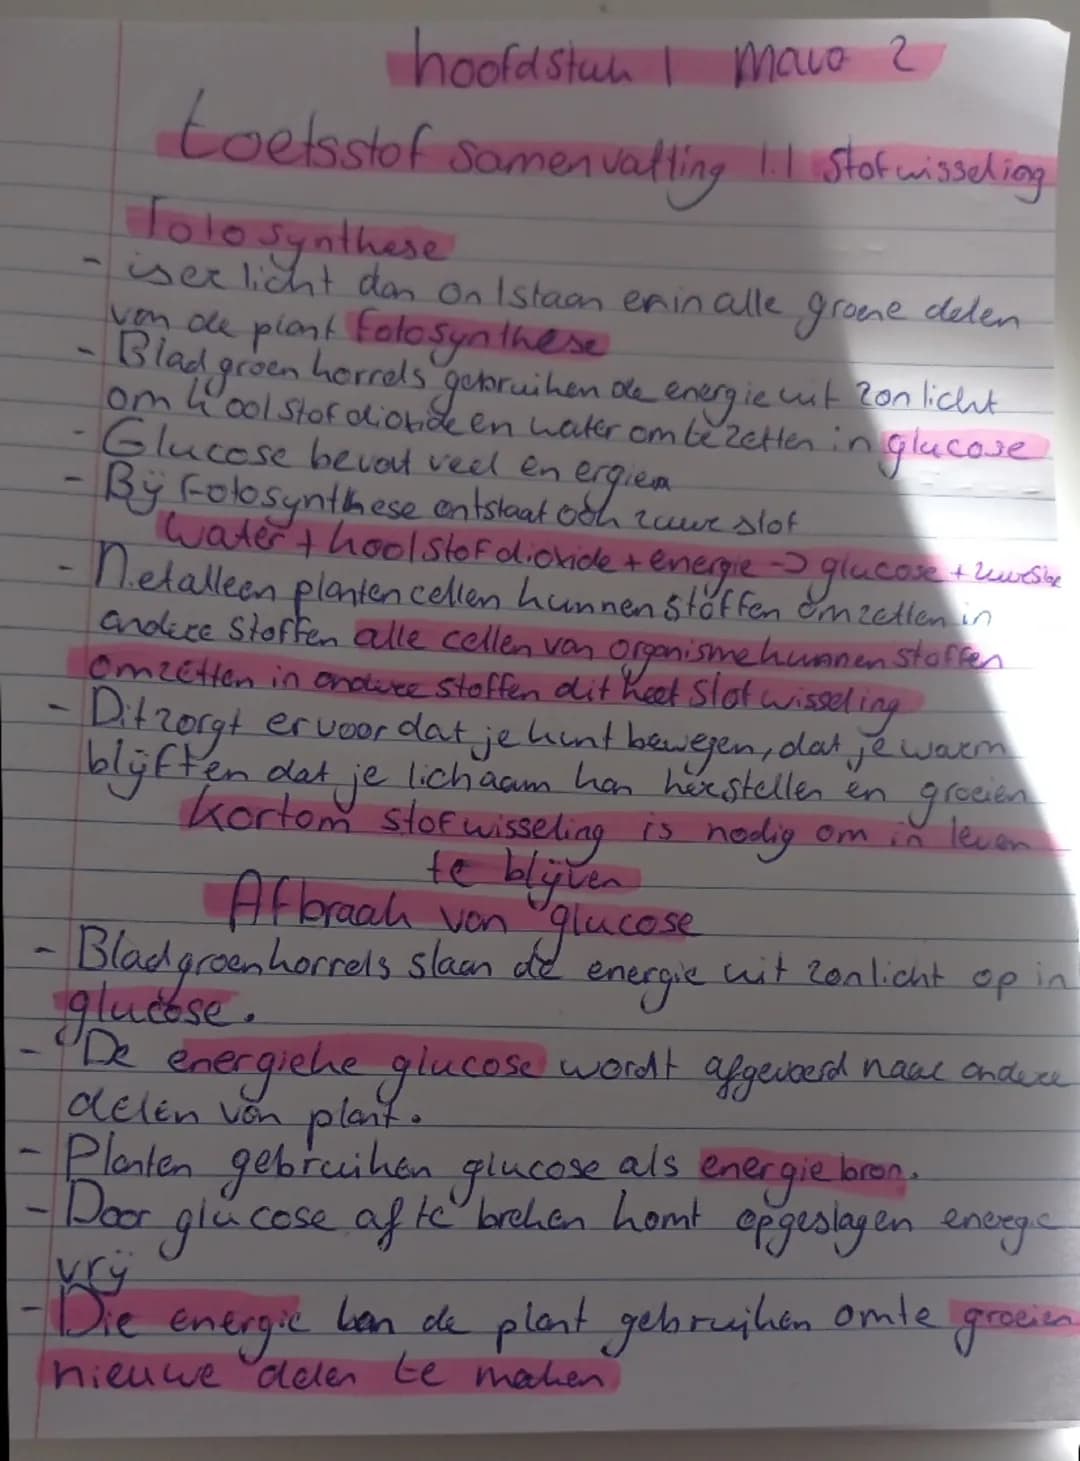 hoofdstuk 1 mavo 2
toetsstof samenvatting 1.1 Stofwisseling
Fotosynthese
- is er licht dan ontstaan er in alle groene delen
van de plant fotosynthese
- Bladgroenkorrels gebruiken de energie uit zonlicht
om koolstofdioxide en water om te zetten in glucose
- Glucose bevat veel energie
- Bij Fotosynthese ontstaat ook zuurstof
water + koolstofdioxide + energie -> glucose + zuurstof
- Niet alleen plantencellen kunnen stoffen omzetten in
andere stoffen alle cellen van organisme kunnen stoffen
omzetten in andere stoffen dit heet Stofwisseling
- Dit zorgt ervoor dat je kunt bewegen, dat je warm
blijft en dat je lichaam kan herstellen en groeien
kortom stofwisseling is nodig om in leven
te blijven
Afbraak van glucose
- Bladgroenkorrels slaan de energie uit zonlicht op in
glucose.
- De energieke glucose wordt afgevoerd naar andere
delen van plant.
- Planten gebruiken glucose als energie bron.
- Door glucose af te breken komt opgeslagen energie
vrij
- Die energie kan de plant gebruiken om te groeien
nieuwe delen te maken